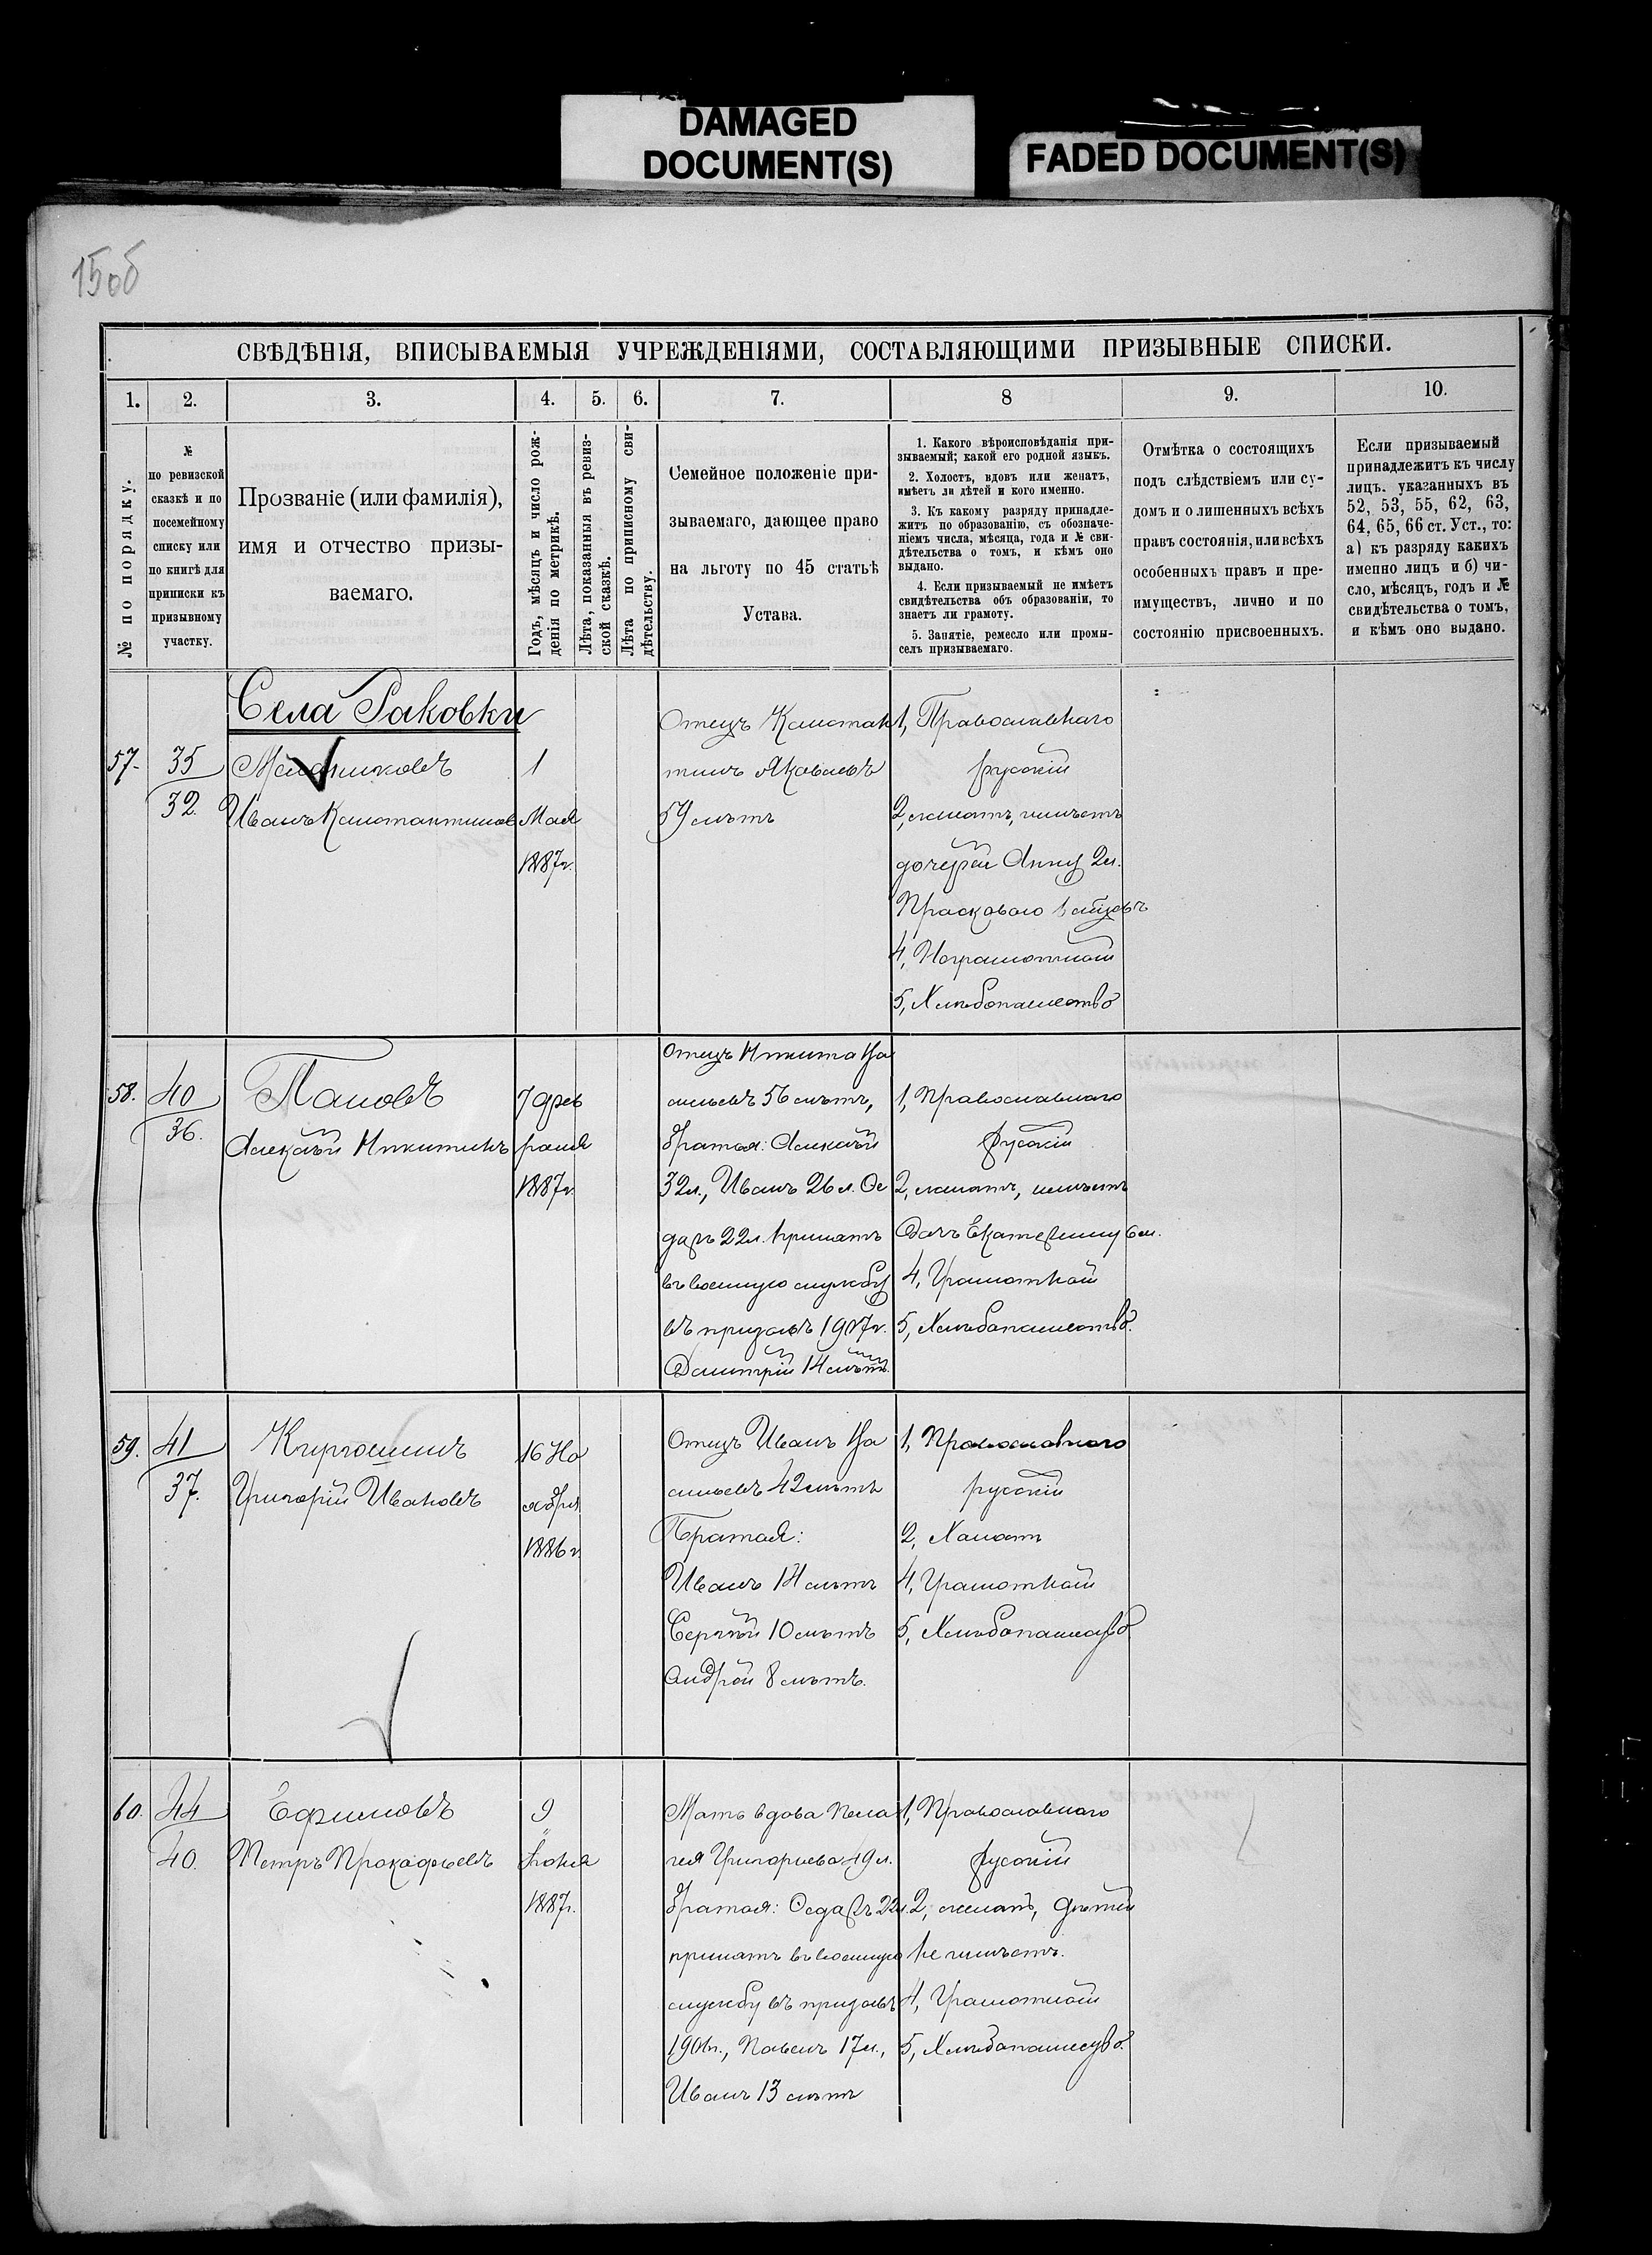 DAMAGED
DOCUMENT(S)
FADED DOCUMENT(S)
15об
СВѢДѢНІЯ, ВПИСЫВАЕМЫЯ УЧРЕЖДЕНІЯМИ, СОСТАВЛЯЮЩИМИ ПРИЗЫВНЫЕ СПИСКИ.
1. 2. 3. 4. 5. 6. 7. 8 9. 10.
№ по порядку.
№
по ревизской
сказкѣ и по
посемейному
списку или
по книгѣ для
приписки къ
призывному
участку.
Прозваніе (или фамилія),
имя и отчество призы-
ваемаго.
Годъ, мѣсяцъ и число рож-
денія по метрикѣ.
Лѣта, показанныя въ ревиз-
ской сказкѣ.
Лѣта по приписному сви-
дѣтельству.
Семейное положеніе при-
зываемаго, дающее право
на льготу по 45 статьѣ
Устава.
1. Какого вѣроисповѣданія при-
зываемый; какой его родной языкъ.
2. Холостъ, вдовъ или женатъ,
имѣетъ ли дѣтей и кого именно.
3. Къ какому разряду принадле-
житъ по образованію, съ обозначе-
ніемъ числа, мѣсяца, года и № сви-
дѣтельства о томъ, и кѣмъ оно
выдано.
4. Если призываемый не имѣетъ
свидѣтельства объ образованіи, то
знаетъ ли грамоту.
5. Занятіе, ремесло или промы-
селъ призываемаго.
Отмѣтка о состоящихъ
подъ слѣдствіемъ или су-
домъ и о лишенныхъ всѣхъ
правъ состоянія, или всѣхъ
особенныхъ правъ и пре-
имуществъ, лично и по
состоянію присвоенныхъ.
Если призываемый
принадлежитъ къ числу
лицъ. указанныхъ въ
52, 53, 55, 62, 63,
64, 65, 66 ст. Уст., то:
а) къ разряду какихъ
именно лицъ и б) чи-
сло, мѣсяцъ, годъ и №
свидѣтельства о томъ,
и кѣмъ оно выдано.
Села Раковки
57.
35
32.
Иванъ Констянтинов
1
Мая
1887г.
Отецъ Констан
тинъ Яковлевъ
59 лѣтъ
1, Православнаго
русскій
2, женатъ, имѣетъ
дочерей Анну 2л.
Прасковью
4, Неграмотной
5, Хлѣбопашество
58.
40
36.
Пановъ
Алексѣй Никитинъ
7 фев
раля
1887г.
Отецъ Никита Ва
сильевъ 56 лѣтъ,
братья: Алексѣй
32л., Иванъ 26 л. Ѳе
доръ 22л. принятъ
въ военную службу
въ призывъ 1907г.
Дмитрій 14 лѣтъ.
1, Православнаго
русскій
2, женатъ, имѣетъ
Дочь Екатерину
4, Грамотной
5, Хлѣбопашество.
59.
41
37.
Григорій Ивановъ
16 Но
ября
1886 г.
Отецъ Иванъ Ва
сильевъ 42 лѣтъ
Братья:
Иванъ 14 лѣтъ
Сергѣй 10 лѣтъ
Андрей 8 лѣтъ.
1, Православнаго
русскій
2, Холостъ
4, Грамотной
5, Хлѣбопашество.
60.
44
40.
Ефимовъ
Петръ Прокофьевъ
9
Іюня
1887г.
Мать вдова Пела
гея Григорьева 49л.
братья: Ѳедоръ 22л.
принятъ въ военную
службу въ призывъ
Павелъ 17л.,
Иванъ 13 лѣтъ
1, Православнаго
русскій
2, женатъ, дѣтей
не имѣетъ.
4, Грамотной
5, Хлѣбопашество.